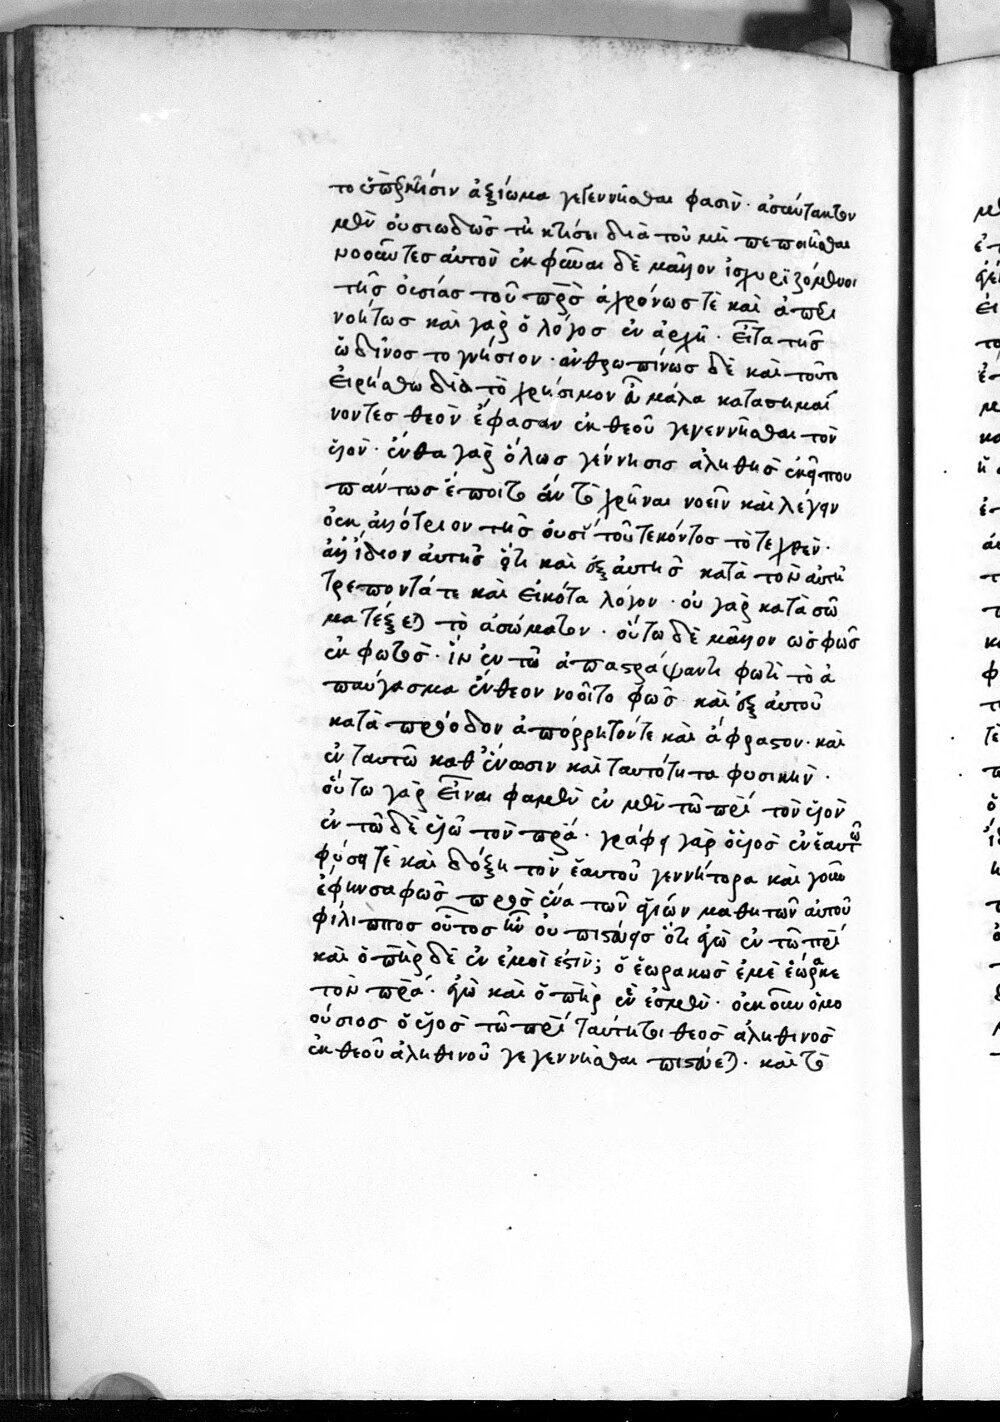 το ὑπὲρ κτίσιν ἀξίωμα γεγεννῆσθαι φασίν· ἀσύντακτον
μὲν οὐσιωδῶς τῇ κτίσει διὰ τοῦ μὴ πεποιῆσθαι
νοοῦντες αὐτὸν ἐκφῦναι δὲ μᾶλλον ἰσχυριζόμενοι
τῆς οὐσίας τοῦ πρσ ἀχρόνως τὲ καὶ ἀπερι
νοήτως καὶ γὰρ ὁ λόγος ἐν ἀρχῇ· εἶτα τῆς
ὠδῖνος το γνήσιον· ἀνθρωπίνως δὲ καὶ τοῦτο
εἰρήσθω διὰ τὸ χρήσιμον εὖ μάλα κατασημαί
νοντες θεὸν ἔφασαν ἐκ θεοῦ γεγεννῆσθαι τὸν
υἱόν· ἔνθα γὰρ ὅλως γέννησις ἀληθὴς ἐκεῖ που
πάντως ἕποιτο ἂν τὸ χρῆναι νοεῖν καὶ λέγειν
οὐκ ἀλλότριον τῆς οὐσί τοῦ τεκόντος τὸ τεχθέν·
ἀλλ ἴδιον αὐτῆς ὅτι καὶ ἐξ αὐτῆς κατὰ τὸν αὐτῇ
πρέποντά τε καὶ εἰκότα λόγον· οὐ γὰρ κατὰ σῶ
μα τέξεται τὸ ἀσώματον· οὕτω δὲ μᾶλλον ὡς φῶς
ἐκ φωτός· ἵν ἐν τῶ ἀπαστράψαντι φωτὶ τὸ ἀ
παύγασμα ἔνθεον νοοῖτο φῶς καὶ ἐξ αὐτοῦ
κατὰ πρόοδον ἀπόρρητόν τε καὶ ἄφραστον· καὶ
ἐν ταυτῶ καθ ἕνωσιν καὶ ταυτότητα φυσικήν·
οὕτω γὰρ εἶναι φαμὲν ἐν μὲν τῶ πρί τὸν υἱὸν
ἐν τῶ δὲ υἱῶ τὸν πρα· γράφει γὰρ ὁ υἱὸς ἐν ἑαυτῶ
φύσει τὲ καὶ δόξη τὸν ἑαυτοῦ γεννήτορα καὶ γοῦν
ἔφη σαφῶς πρὸς ἕνα τῶν ἁγίων μαθητῶν αὐτοῦ
φίλιππος οὗτος ἦν οὐ πιστεύεις ὅτι ἐγὼ ἐν τῶ πρί
καὶ ὁ πηρ δὲ ἐν ἐμοὶ ἐστίν; ὁ ἑωρακὼς ἐμὲ ἑώρακε
τὸν πρα· ἐγὼ καὶ ὁ πηρ ἕν ἐσμεν· οὐκοῦν ὁμο
ούσιος ὁ υἱὸς τῶ πρί ταύτητοι θεὸς ἀληθινὸς
ἐκ θεοῦ ἀληθινοῦ γεγεννῆσθαι πιστεύεται· καὶ τὸ